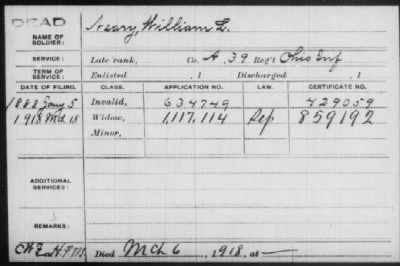 DEAD
NAME OF SOLDIER: Neary, William L.
SERVICE: Late rank, Co. A, 39 Reg't Ohio Inf
TERM OF SERVICE: Enlisted , 1 Discharged , 1
DATE OF FILING. CLASS. APPLICATION NO. LAW. CERTIFICATE NO.
1888 Jany 5 Invalid, 634749 429059
1918 Mch 18 Widow, 1,117,114 Rep 859192
Minor,
ADDITIONAL SERVICES:
REMARKS:
Died Mch 6 1918, at —